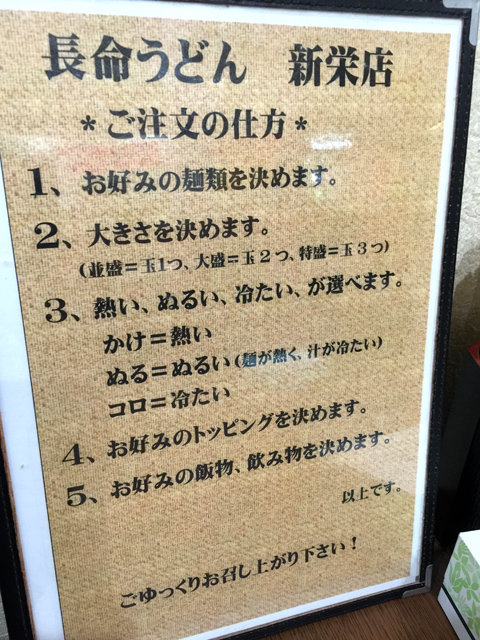 長命うどん 新栄店
＊ご注文の仕方＊
1、お好みの麺類を決めます。
2、大きさを決めます。
(並盛＝玉1つ、大盛＝玉2つ、特盛＝玉3つ)
3、熱い、ぬるい、冷たい、が選べます。
かけ＝熱い
ぬる＝ぬるい(麺が熱く、汁が冷たい)
コロ＝冷たい
4、お好みのトッピングを決めます。
5、お好みの飯物、飲み物を決めます。
以上です。
ごゆっくりお召し上がり下さい！